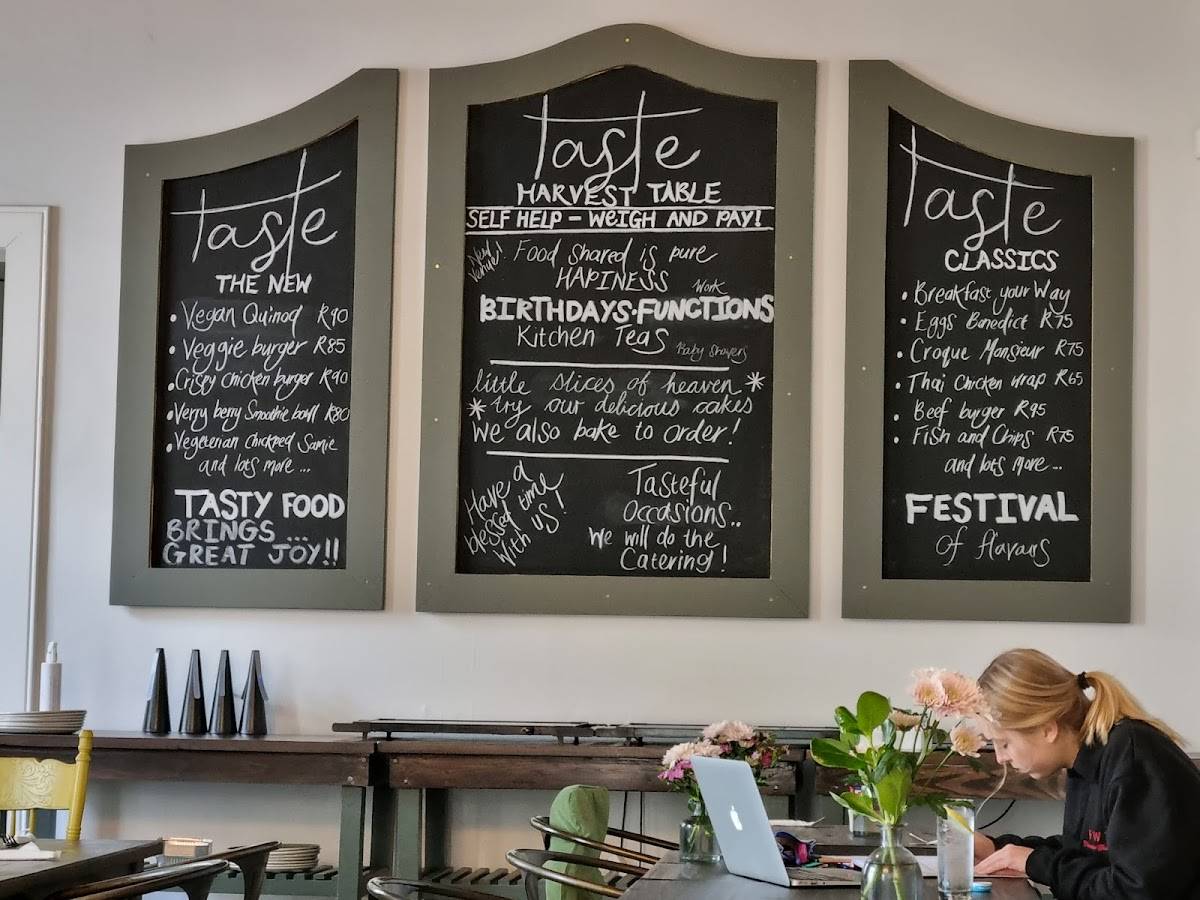 Taste
THE NEW
• Vegan Quinoa R90
• Veggie burger R85
• Crispy chicken burger R90
• Verry berry Smoothie bowl R80
• Vegeterian Chickped Samie
and lots more ...
TASTY FOOD
BRINGS ...
GREAT JOY!!
Taste
HARVEST TABLE
SELF HELP - WEIGH AND PAY!
New Venue!
Food Shared is pure
HAPINESS
Work
BIRTHDAYS·FUNCTIONS
Kitchen Teas
Baby Showers
little slices of heaven
try our delicious cakes
We also bake to order!
Have a
blessed time
with us!
Tasteful
Occasions..
We will do the
Catering!
Taste
CLASSICS
• Breakfast your Way
• Eggs Benedict R75
• Croque Monsieur R75
• Thai Chicken wrap R65
• Beef burger R95
• Fish and Chips R75
and lots more...
FESTIVAL
of flavours